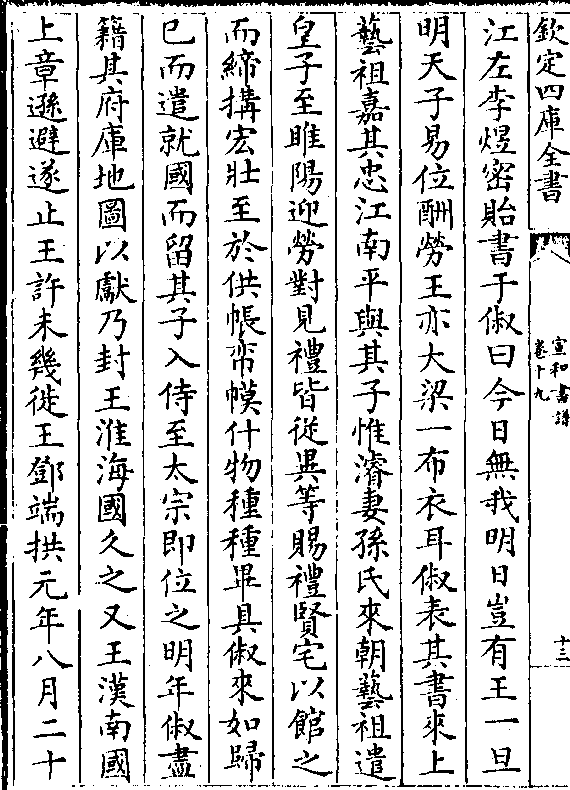 欽定四庫全書
宣和書譜
卷十九
十三
江左李煜密貽書于俶曰今日無我明日豈有王一旦
明天子易位酬勞王亦大梁一布衣耳俶表其書來上
藝祖嘉其忠江南平與其子惟濬妻孫氏來朝藝祖遣
皇子至睢陽迎勞對見禮皆從異等賜禮賢宅以館之
而締搆宏壯至於供帳帟幙什物種種畢具俶來如歸
已而遣就國而留其子入侍至太宗即位之明年俶盡
籍其府庫地圖以獻乃封王淮海國久之又王漢南國
上章遜避遂止王許未幾徙王鄧端拱元年八月二十